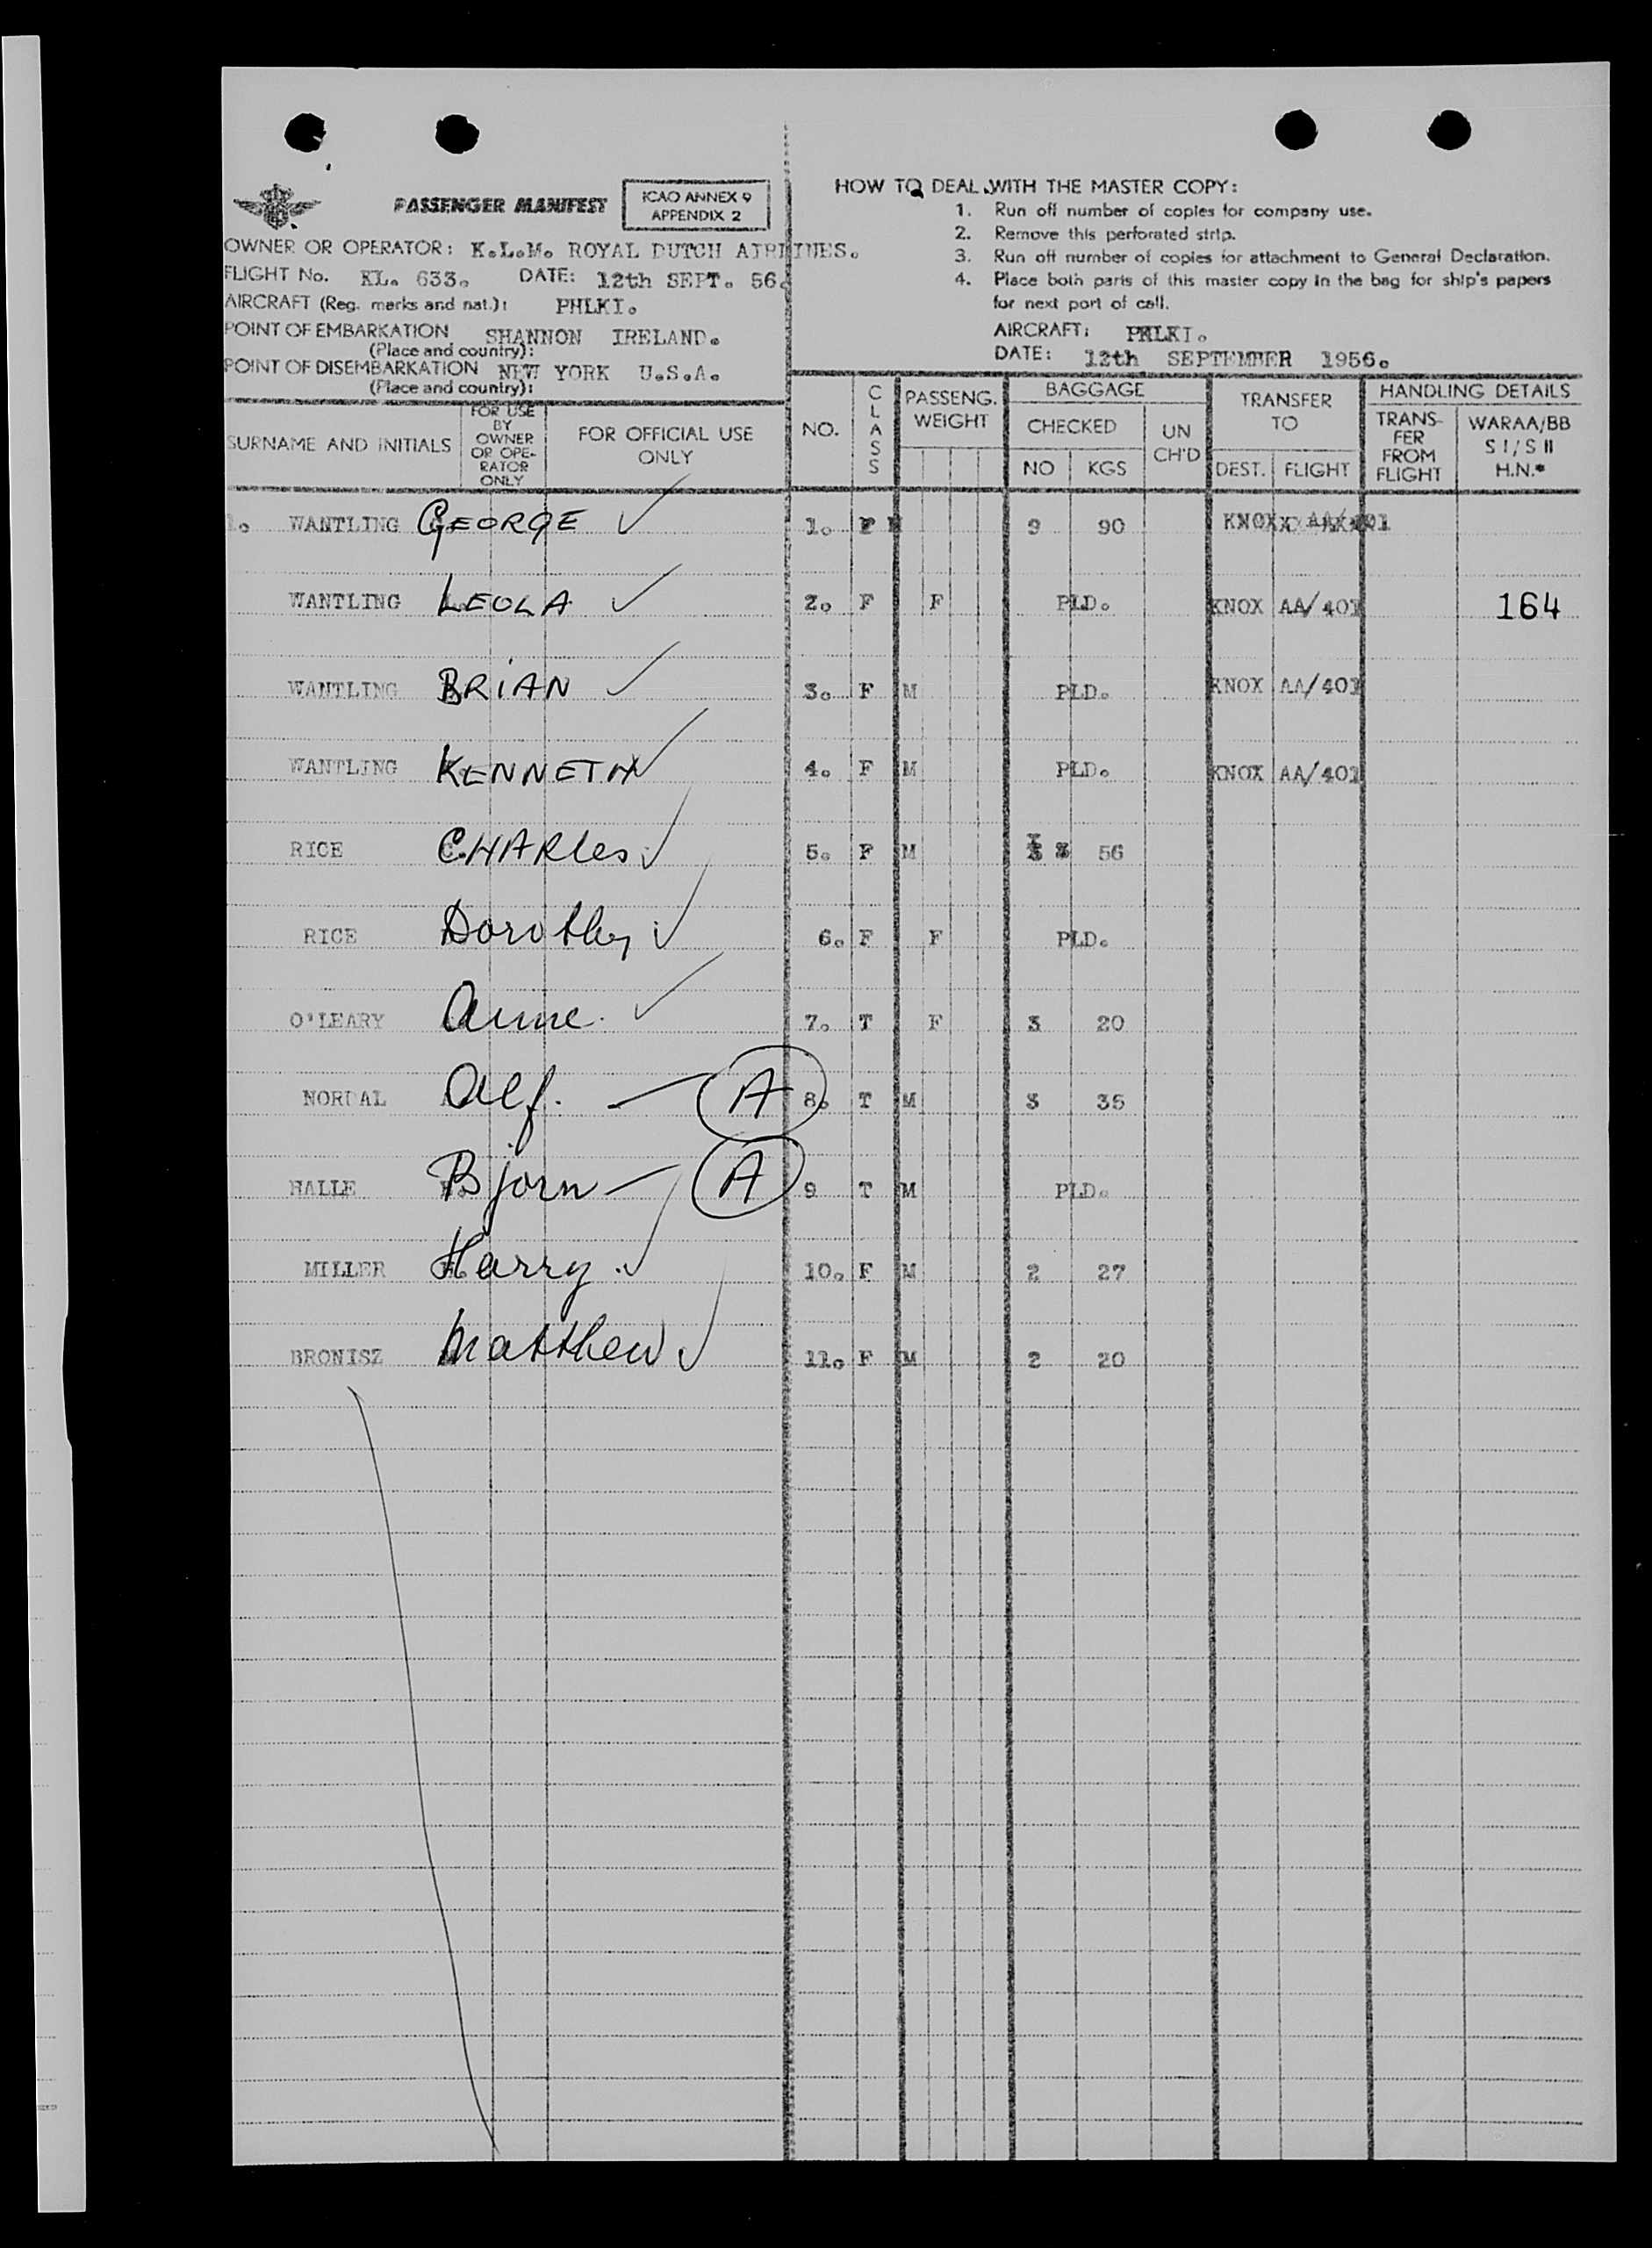 PASSENGER MANIFEST
ICAO ANNEX 9
APPENDIX 2
OWNER OR OPERATOR: K.L.M. ROYAL DUTCH AIRLINES.
FLIGHT No. KL. 633. DATE: 12th SEPT. 56.
AIRCRAFT (Reg. marks and nat.): PHLKI.
POINT OF EMBARKATION SHANNON IRELAND.
(Place and country):
POINT OF DISEMBARKATION NEW YORK U.S.A.
(Place and country):
HOW TO DEAL WITH THE MASTER COPY:
1. Run off number of copies for company use.
2. Remove this perforated strip.
3. Run off number of copies for attachment to General Declaration.
4. Place both parts of this master copy in the bag for ship's papers
for next port of call.
AIRCRAFT: PHLKI.
DATE: 12th SEPTEMBER 1956.
SURNAME AND INITIALS
FOR USE
BY
OWNER
OR OPE-
RATOR
ONLY
FOR OFFICIAL USE
ONLY
NO.
CLASS
PASSENG.
WEIGHT
BAGGAGE
CHECKED
NO KGS
UN
CH'D
TRANSFER
TO
DEST. FLIGHT
HANDLING DETAILS
TRANS-
FER
FROM
FLIGHT
WARAA/BB
S I/S II
H.N.*
1. WANTLING GEORGE ✓ 1. F 9 90
WANTLING LEOLA ✓ 2. F F PLD. KNOX AA/401 164
WANTLING BRIAN ✓ 3. F M PLD. KNOX AA/401
WANTLING KENNETH ✓ 4. F M PLD. KNOX AA/401
RICE CHARles ✓ 5. F M 56
RICE Dorothy ✓ 6. F F PLD.
O'LEARY Anne. ✓ 7. T F 3 20
NORDAL Alf. — A 8. T M 3 35
HALLE Bjorn — A 9 T M PLD.
MILLER Harry. ✓ 10. F M 2 27
BRONISZ Matthew ✓ 11. F M 2 20